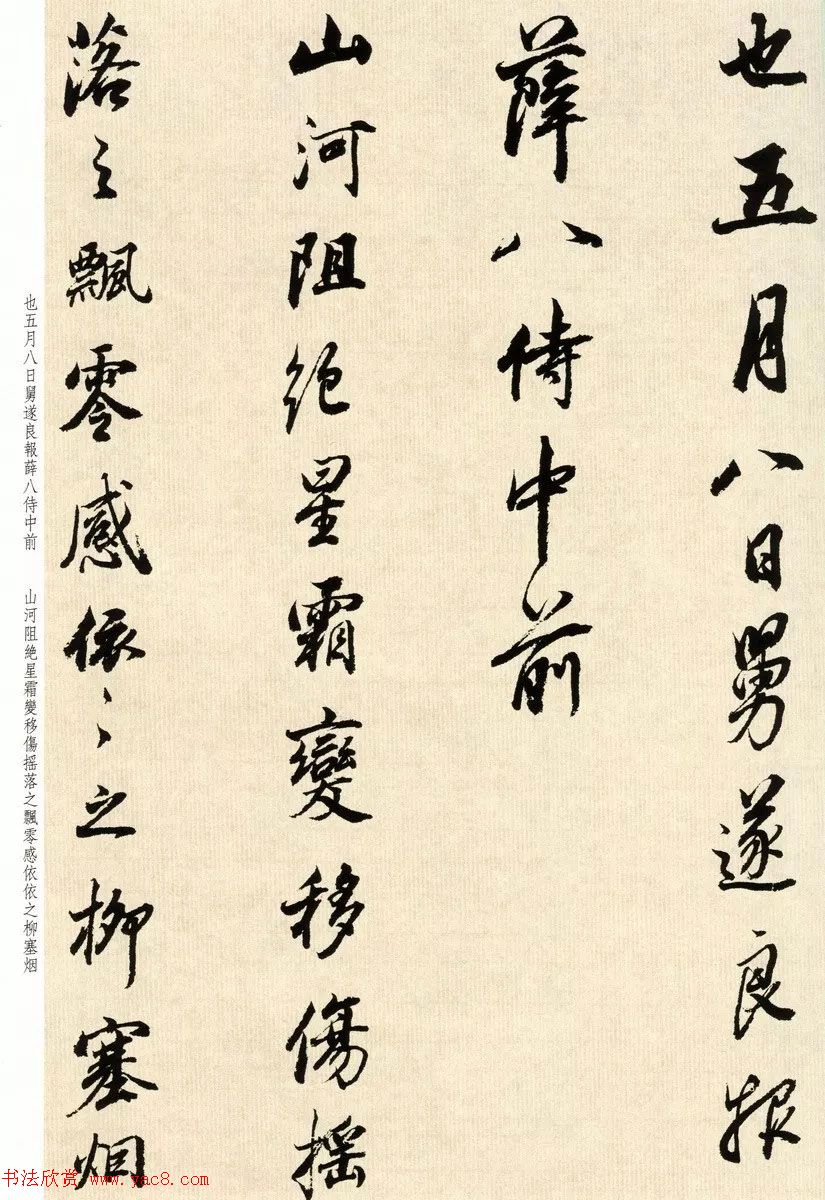 也五月八日舅遂良报
薛八侍中前
山河阻绝星霜變移傷摇
落之飄零感依〻之柳塞烟
也五月八日舅遂良報薛八侍中前　山河阻绝星霜變移傷摇落之飄零感依依之柳塞烟
书法欣赏 www.yac8.com